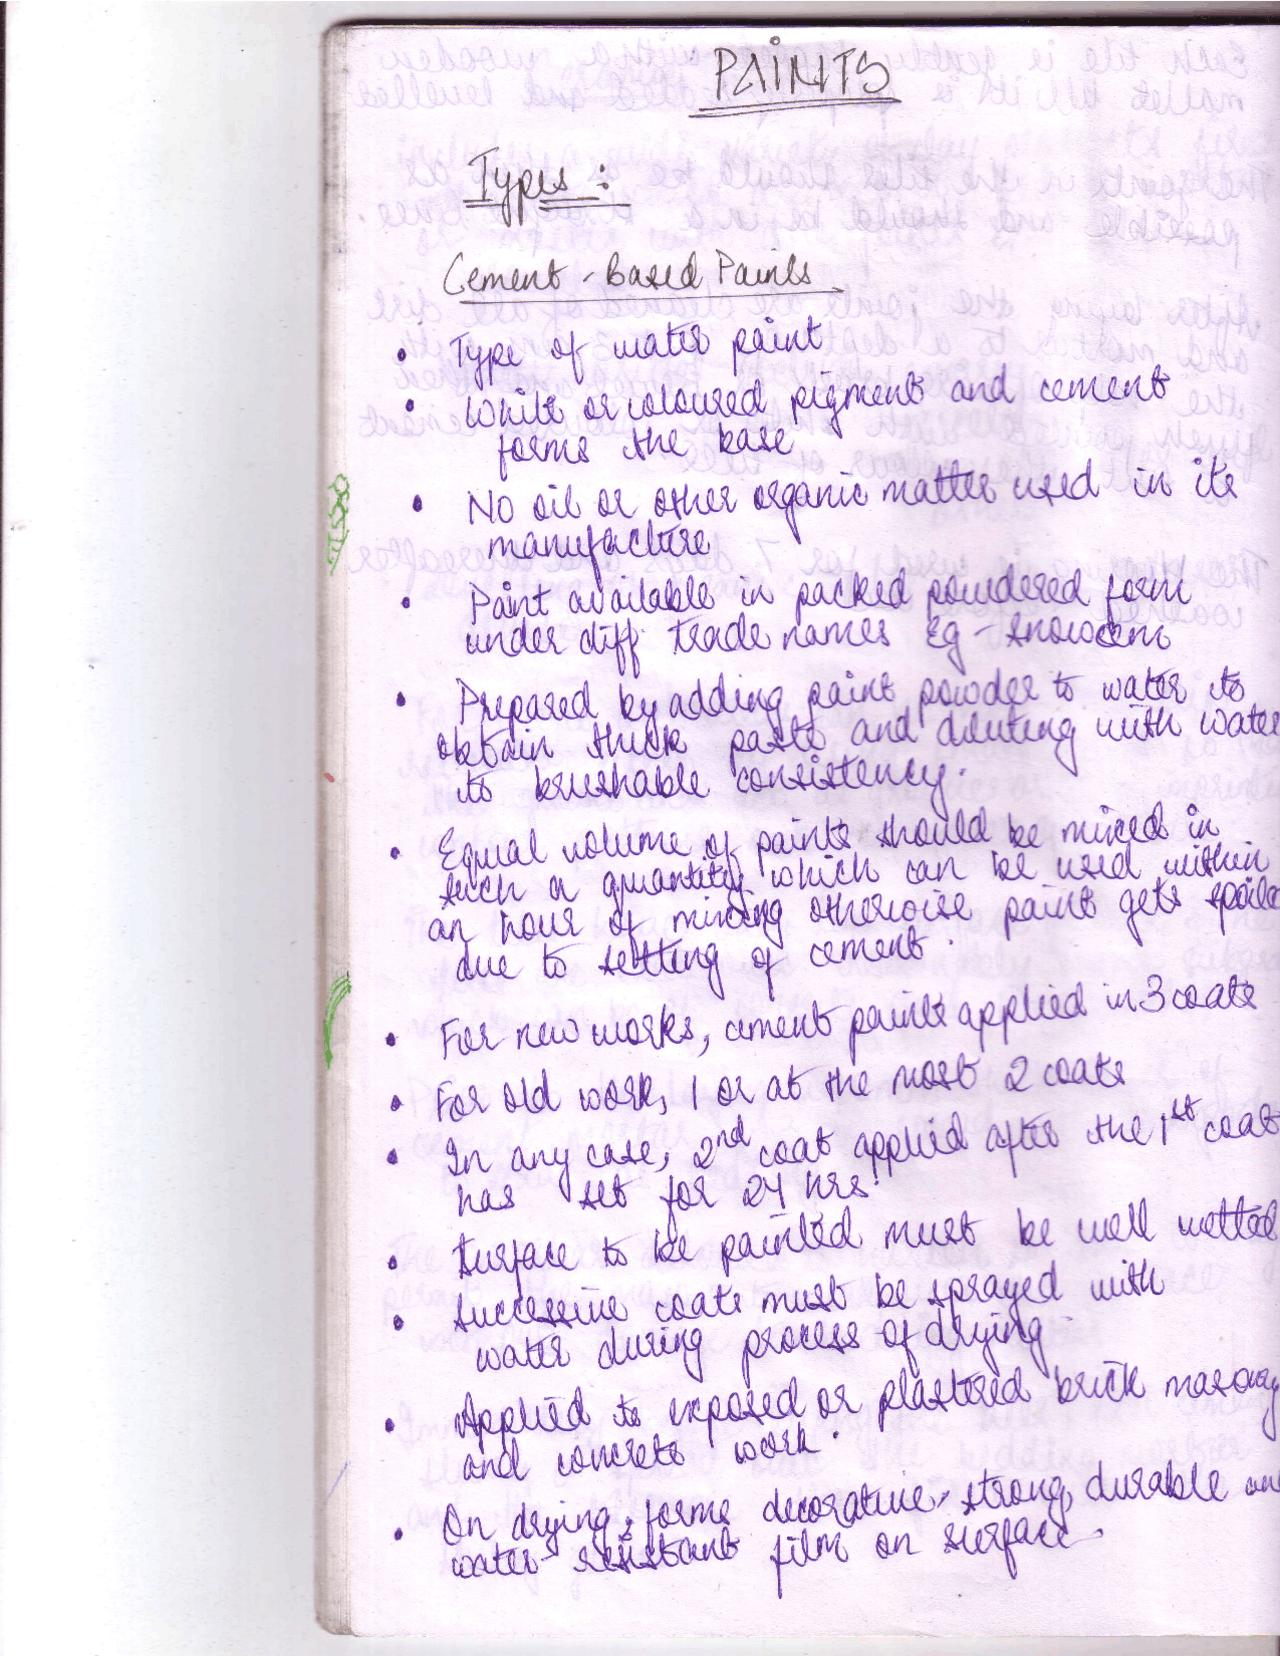 PAINTS
Types :
Cement - Based Paints
• Type of water paint
• White or coloured pigment and cement
forms the base
• No oil or other organic matter used in its
manufacture
• Paint available in packed powdered form
under diff. trade names Eg - Snowcem
• Prepared by adding paint powder to water to
obtain thick paste and diluting with water
to brushable consistency.
• Equal volume of paints should be mixed in
such a quantity which can be used within
an hour of mixing otherwise paint gets spoile
due to setting of cement.
• For new works, cement paints applied in 3 coats
• For old work, 1 or at the most 2 coats
• In any case, 2nd coat applied after the 1st coat
has set for 24 hrs.
• Surface to be painted must be well wetted
• Successive coats must be sprayed with
water during process of drying
• Applied to exposed or plastered brick masonry
and concrete work.
• On drying, forms decorative, strong, durable an
water-resistant film on surface.